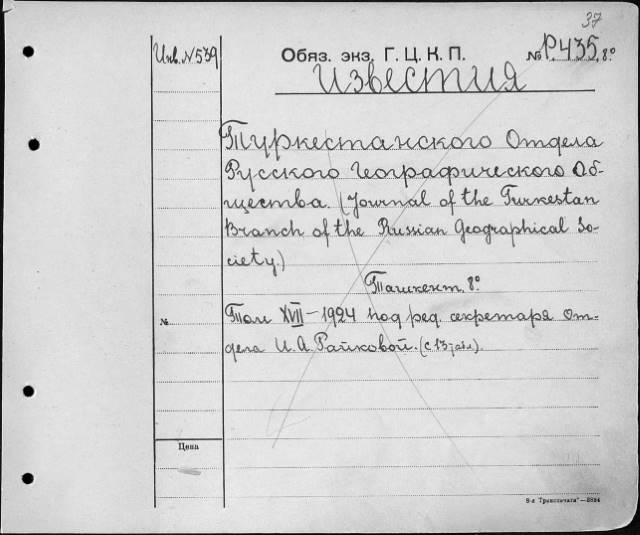 37
Инв. N 539
Обяз. экз. Г. Ц. К. П.
№ Р.435, 8°
Известия
Туркестанского Отдела
Русского Географического Об-
щества. (Journal of the Turkestan
Branch of the Russian Geographical So-
ciety.)
Ташкент, 8°.
№
Том XVII – 1924 под ред. секретаря От-
дела И. А. Райковой. (с 13 табл.).
Цена
8-я Транспечать" — 3894